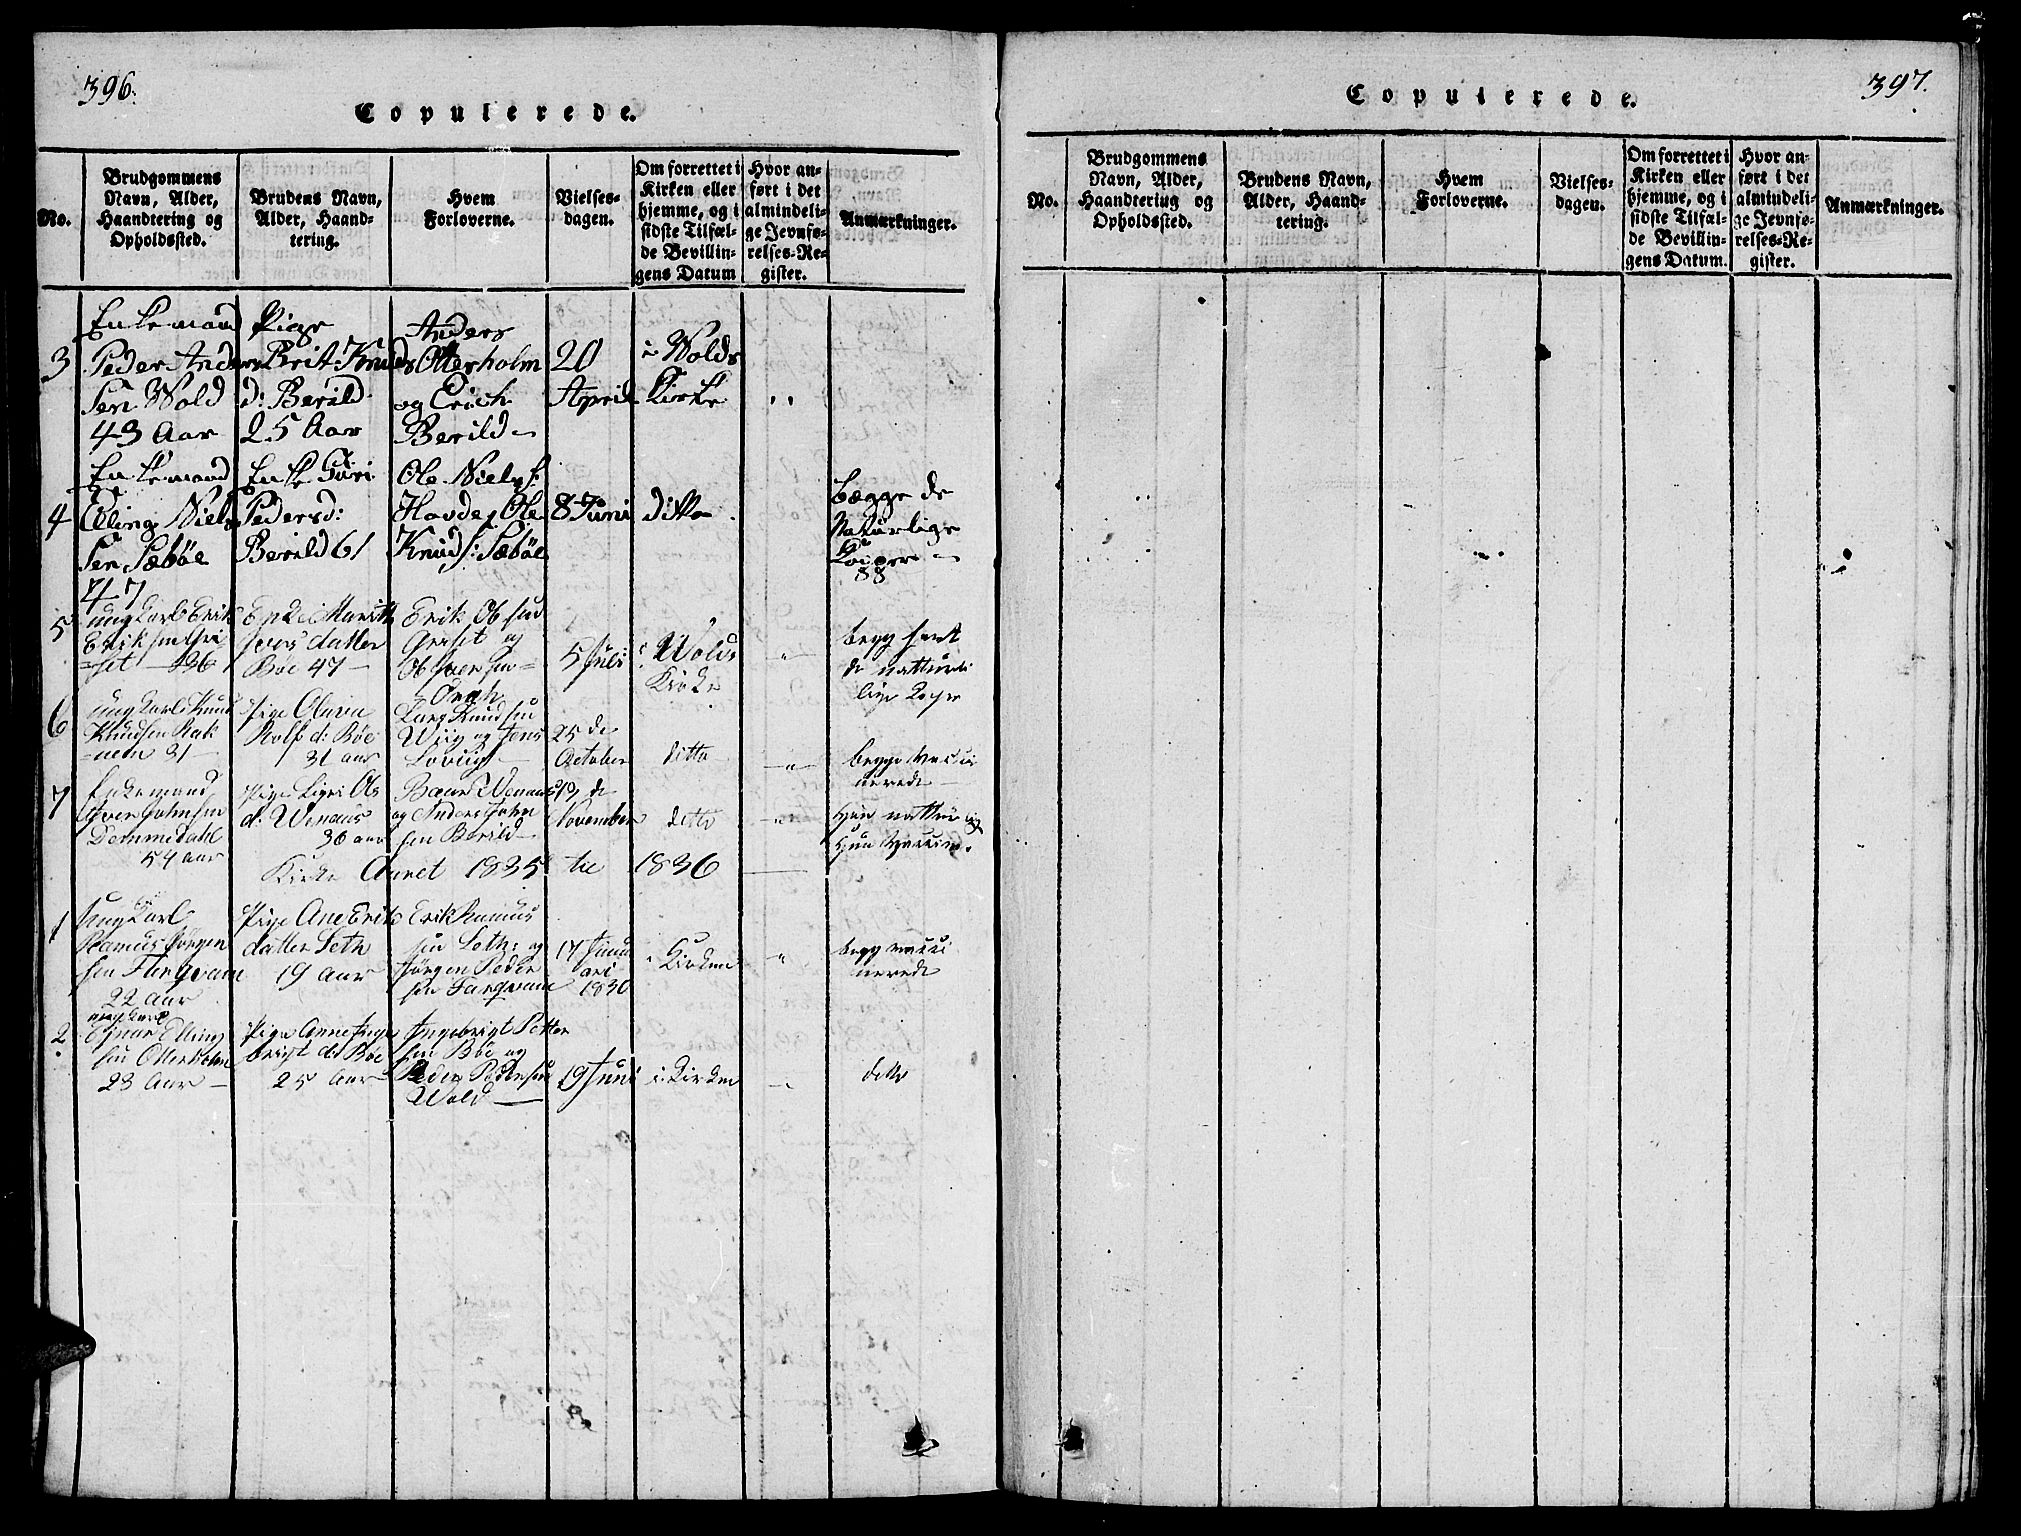 396.
Copulerede.
No.
Brudgommens
Navn, Alder,
Haandtering og
Opholdssted.
Brudens Navn,
Alder, Haand-
tering.
Hvem
Forloverne.
Vielses-
dagen.
Om forrettet i
Kirken eller
hjemme, og i
sidste Tilfæl-
de Bevillin-
gens Datum
Hvor an-
ført i det
almindeli-
ge Jevnfø-
relses-Re-
gister.
Anmærkninger.
3
Enkemand
Peder Anders
Sen Wold
43 Aar
Pige
Brit Knuds
d: Berild
25 Aar
Anders
Otterholm
og Erich
Berild
20
April
i Wolds
Kirke
4
Enkemand
Elling Niels
Sen Sæbøe
47
Enke Guri
Pedersd:
Berild 61
Ole Niels s:
Hovde, Ole
Knuds: Sæbøe
8 Juni
ditto
begge de
Naturlige
Koper
5
ung Karl Erik
Eriksen Gri
set 26
Enke Marith
Ivers datter
Bøe 47
Erik Ol sen
Griset og
Ol Iversen
5 Juli
i Wolds
Kirke
begg havt
de natturli
lige Koper
6
ung Karl Knud
Knudsen Rak
nem 31
Pige Oluva
Rolf d: Bøe
31 aar
Lars Knudsen
Wiig og Jens
25 de
October
ditto
begge vacci
nerede
7
Enkemand
Iver Johnsen
Dommedahl
54 aar
Pige Ols
d: Wenaas
36 aar
Wenaas
og Anders John
sen Berild
de
November
ditto
Han natturlig
Hun Vaccin.
Kirke Aaret 1835 til 1836
1
Ung Karl
Rasmus Jørgen
sen
22 aar
Pige Ane Eriks
datter Seth
19 aar
Erik Rasmus
sen Seth: og
Jørgen Peder
sen
17 Janu
ari
1836
i Kirken
begg vacci
nerede
2.
ung Karl
Einar Elling
sen Otterholm
23 Aar
Pige Anne Inge
brigt d: Bøe
25 Aar
Ingebrigt Petter
sen Bøe og
Peder Pedersen
Wold
19 Juni
i Kirken
ditto
397.
Copulerede.
No.
Brudgommens
Navn, Alder,
Haandtering og
Opholdssted.
Brudens Navn,
Alder, Haand-
tering.
Hvem
Forloverne.
Vielses-
dagen.
Om forrettet i
Kirken eller
hjemme, og i
sidste Tilfæl-
de Bevillin-
gens Datum.
Hvor an-
ført i det
almindeli-
ge Jevnfø-
relses-Re-
gister.
Anmærkninger.